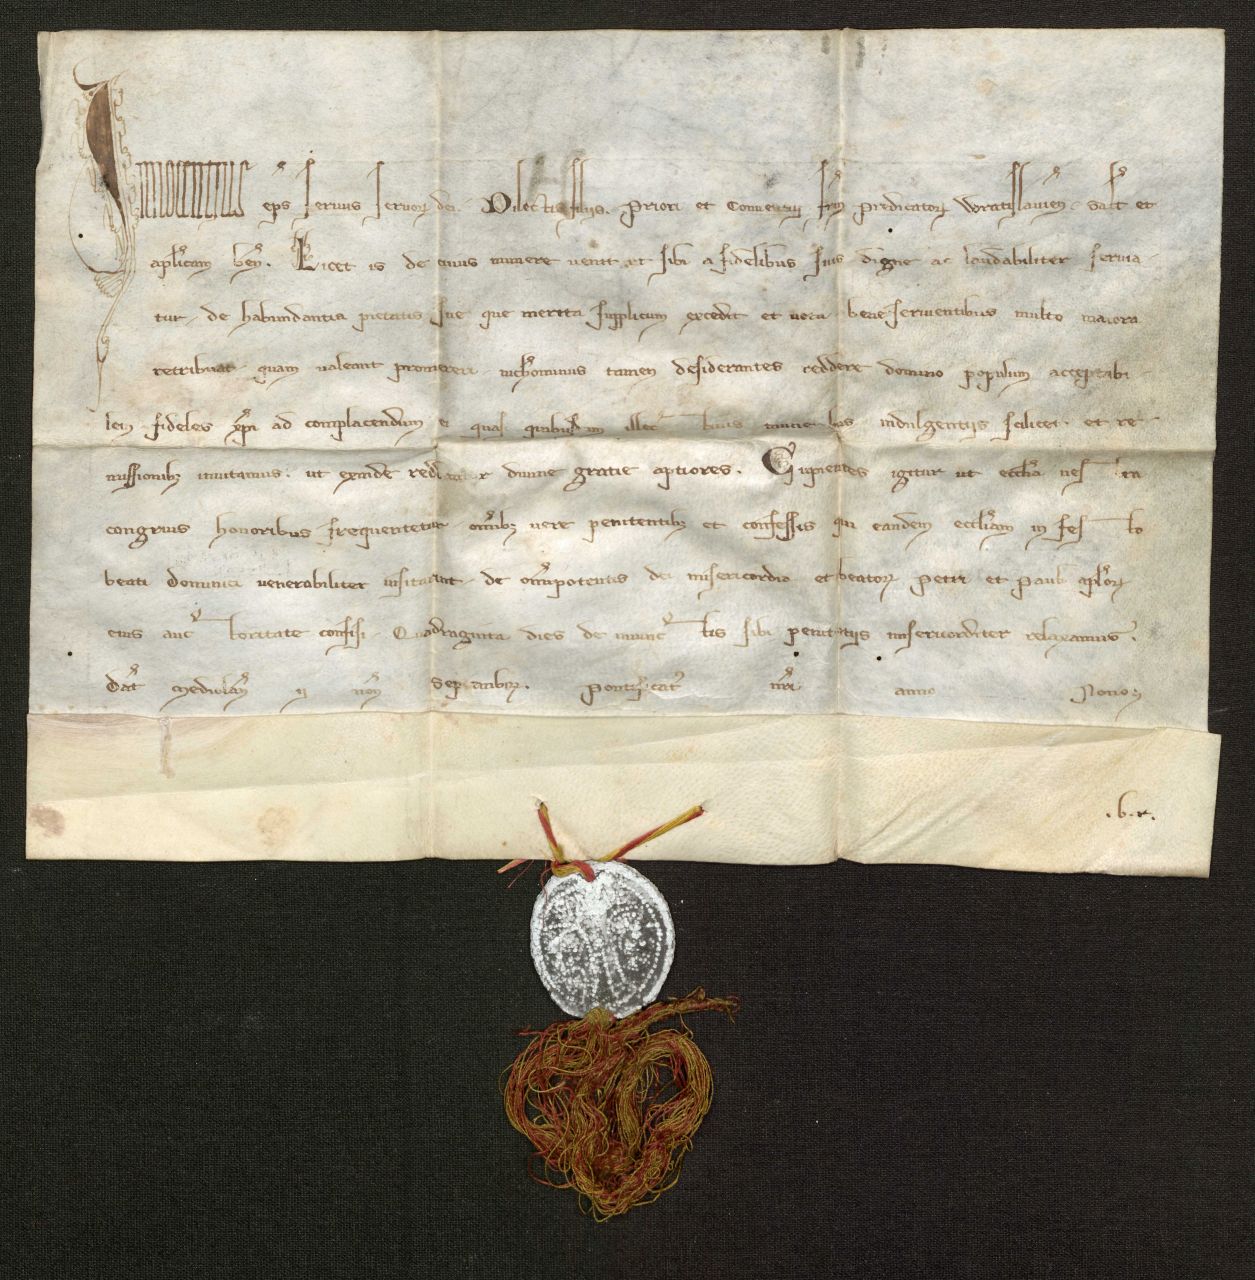 Innocentius eps seruus seruor dei. Dilectis filijs. Priori et Conuentui frm predicator Wratislauien. salt et
aplicam ben. Licet is de cuius munere uenit ut sibi a fidelibus suis digne ac laudabiliter seruia-
tur. de habundantia pietatis sue que merita supplicum excedit et uota. bene seruientibus multo maiora
retribuat. quam ualeant promereri. nichominus tamen desiderantes reddere domino populum acceptabi-
lem. fideles xpi ad complacendum ei quasi quibusdam illectiuis muneribus indulgentijs scilicet. et re-
missionib inuitamus. ut exinde reddantur diuine gratie aptiores. Cupientes igitur ut ecclia uestra
congruis honoribus frequentetur. omib uere penitentib et confessis qui eandem eccliam in festo
beati Dominici uenerabiliter uisitarint. de omipotentis dei misericordia et beator Petri et Pauli aplor
eius auctoritate confisi. Quadraginta dies de iniunctis sibi penitentijs misericorditer relaxamus.
Dat Mediolan ii non Septembr. Pontificat nri anno Nono.
.b.r.